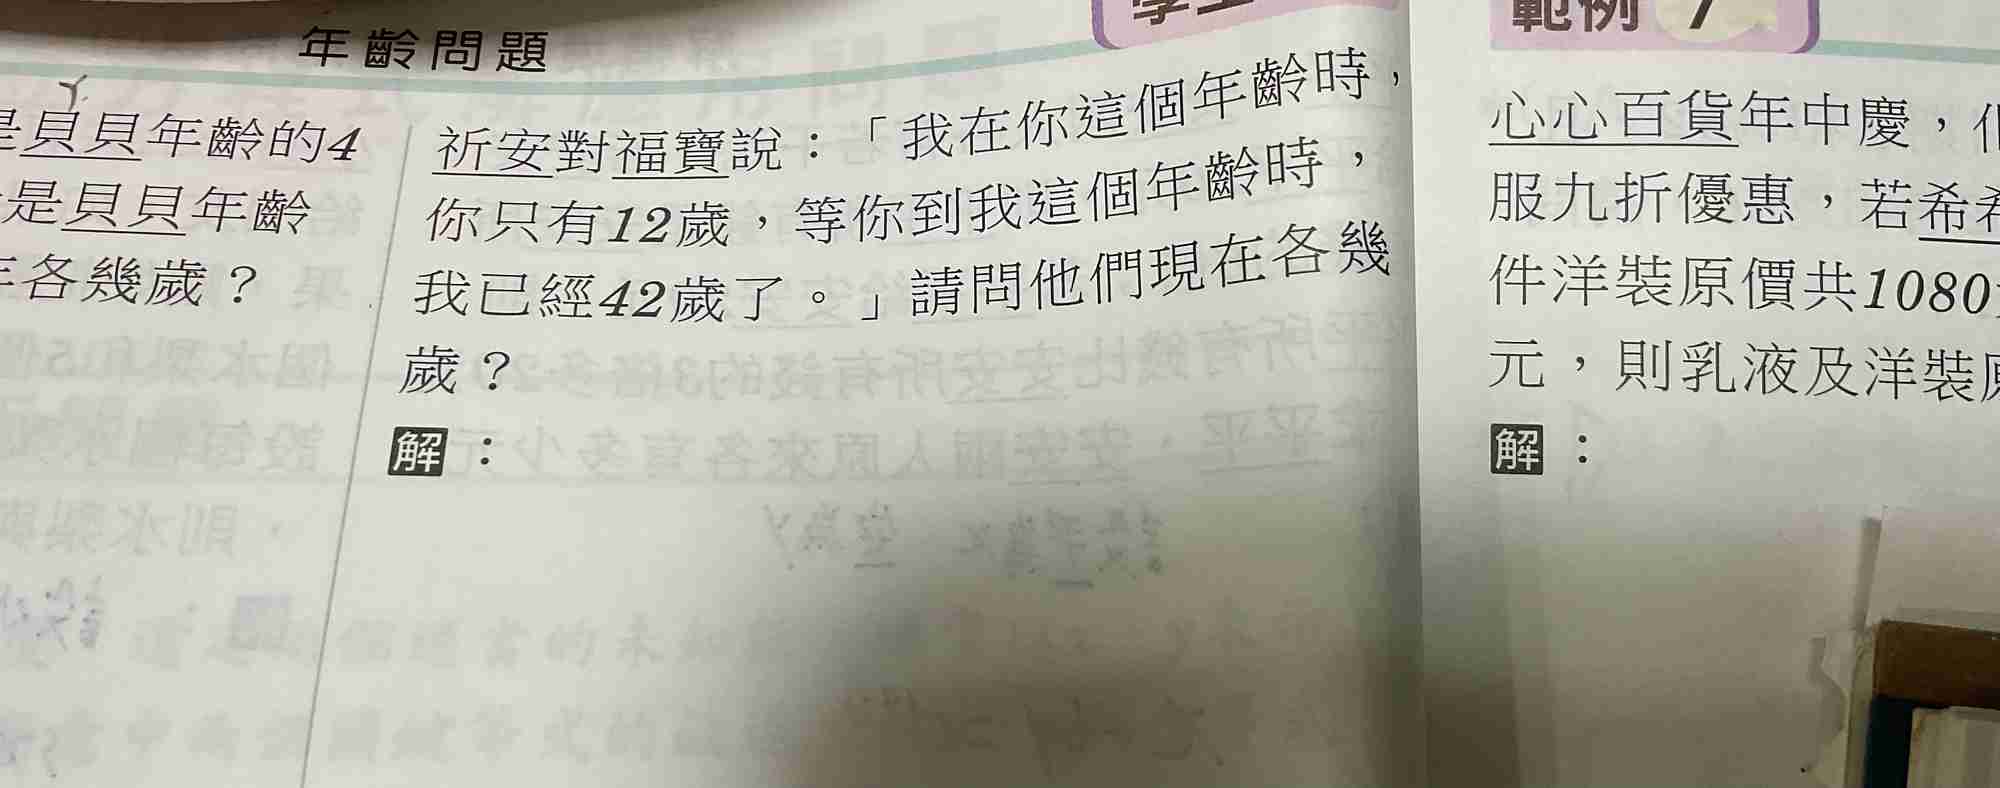 年齡問題
是貝貝年齡的4
是貝貝年齡
各幾歲？
祈安對福寶說：「我在你這個年齡時，
你只有12歲，等你到我這個年齡時，
我已經42歲了。」請問他們現在各幾
歲？
解：
範例 7
心心百貨年中慶，
服九折優惠，若希
件洋裝原價共1080
元，則乳液及洋裝
解：